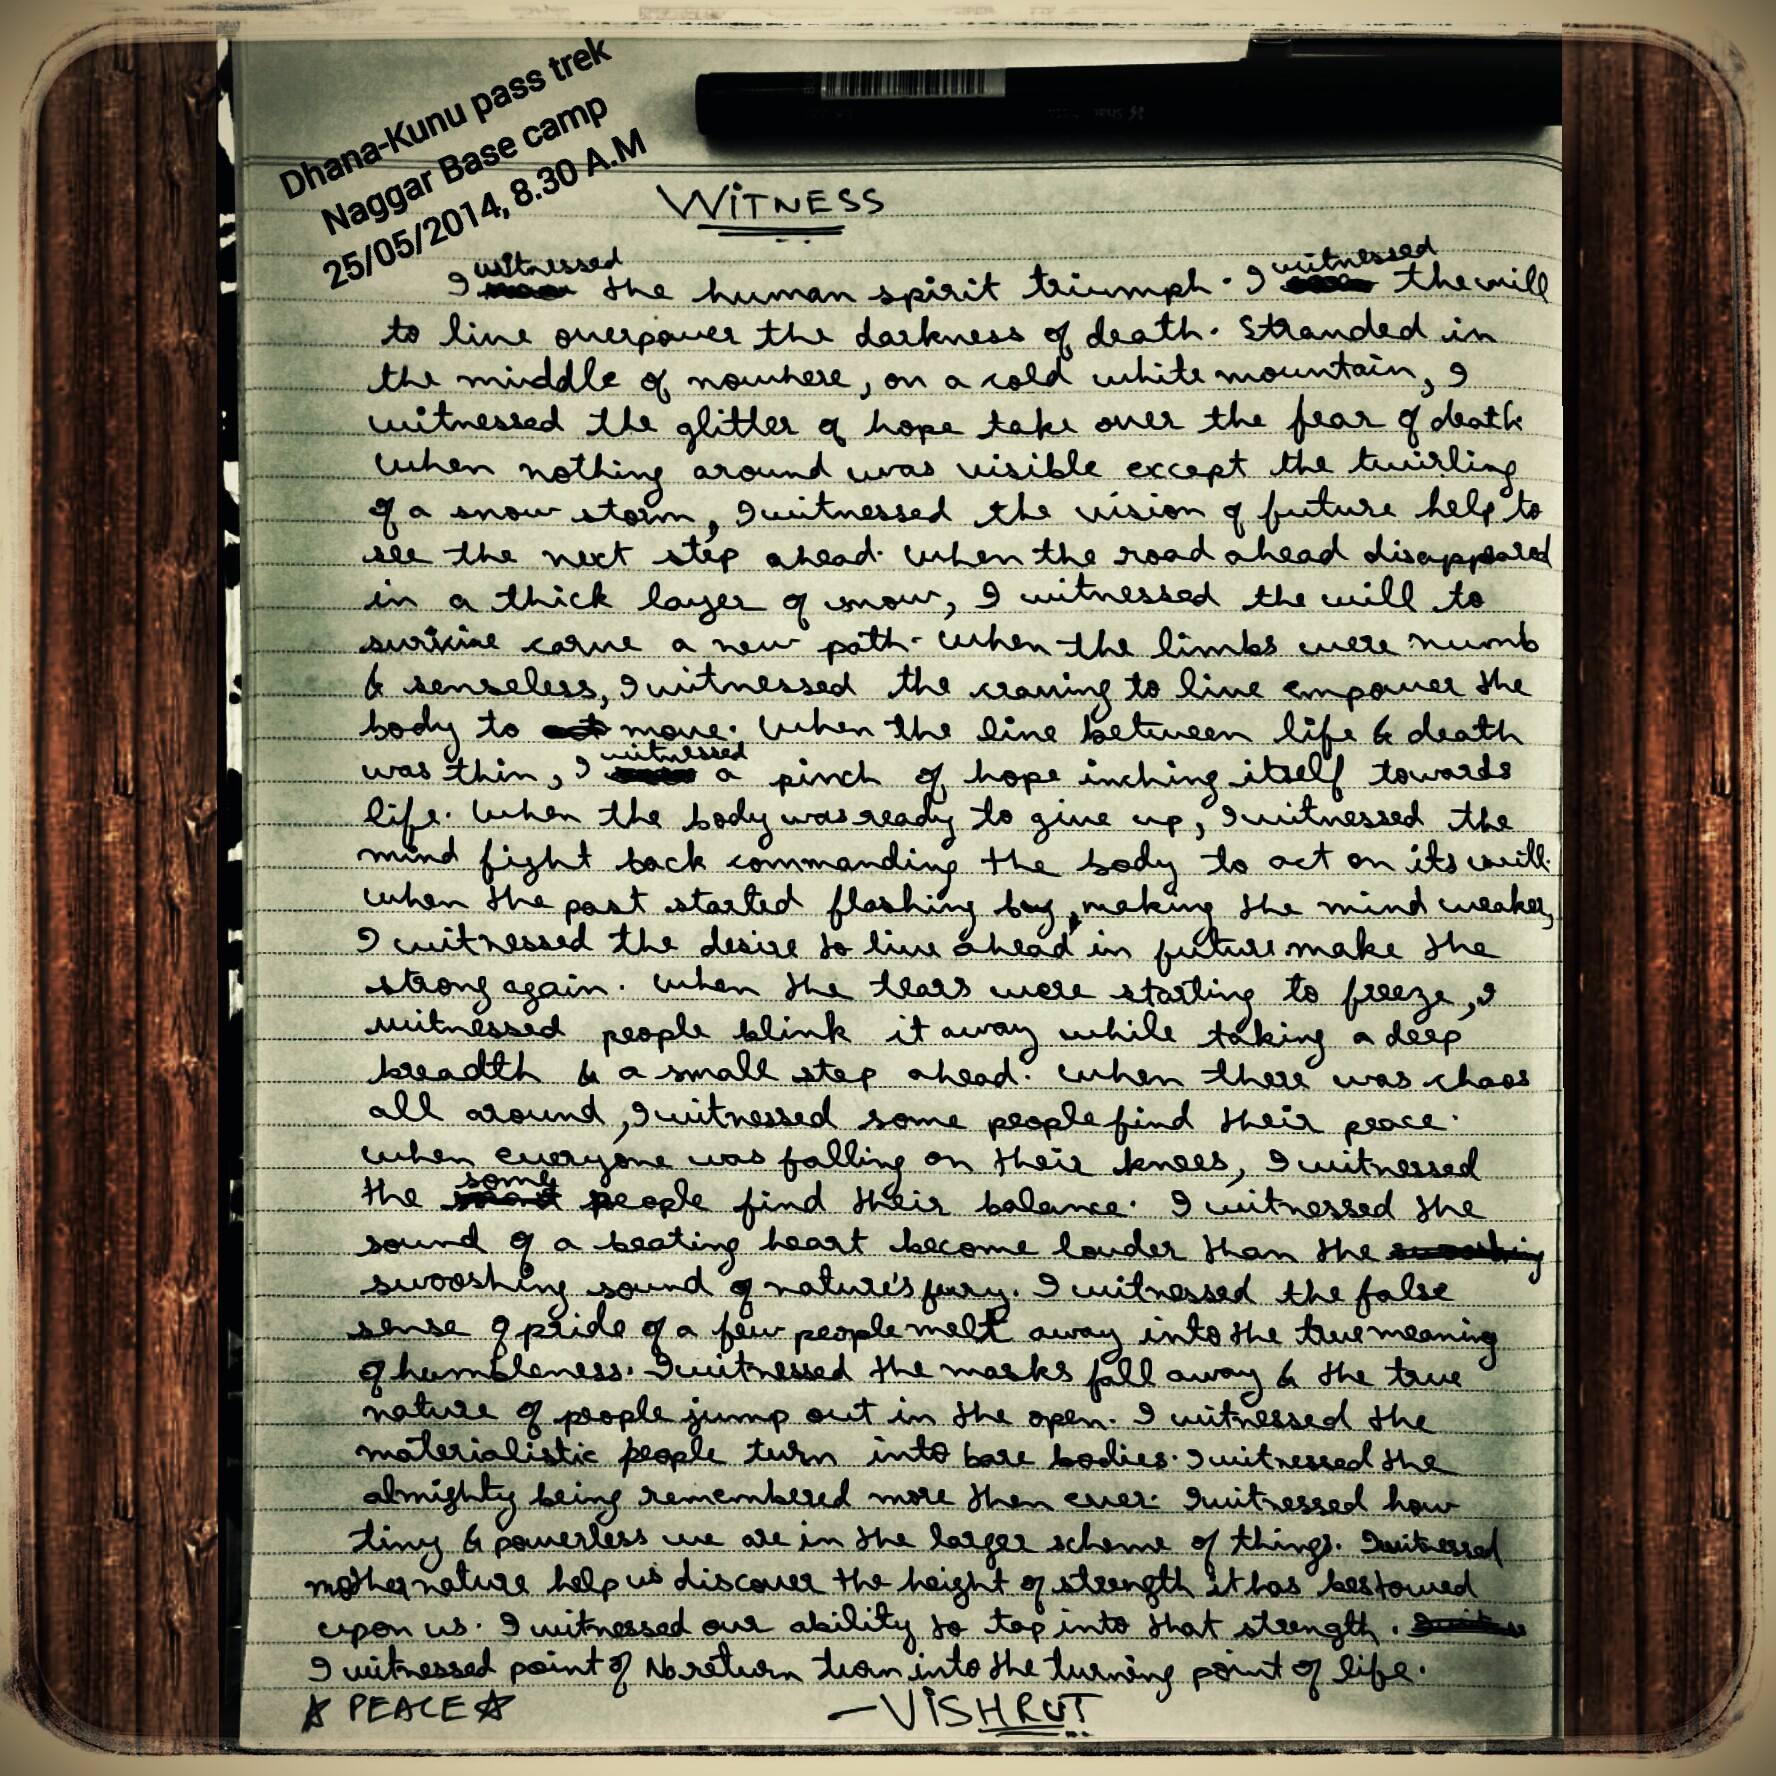 Dhana-Kunu pass trek
Naggar Base camp
25/05/2014, 8.30 A.M
WITNESS
I witnessed the human spirit triumph. I witnessed the will
to live overpower the darkness of death. Stranded in
the middle of nowhere, on a cold white mountain, I
witnessed the glitter of hope take over the fear of death
when nothing around was visible except the twirling
of a snow storm, I witnessed the vision of future help to
see the next step ahead. When the road ahead disappeared
in a thick layer of snow, I witnessed the will to
survive carve a new path. When the limbs were numb
& senseless, I witnessed the craving to live empower the
body to move. When the line between life & death
was thin, I witnessed a pinch of hope inching itself towards
life. When the body was ready to give up, I witnessed the
mind fight back commanding the body to act on its will.
When the past started flashing by, making the mind weaker,
I witnessed the desire to live ahead in future make the
strong again. When the tears were starting to freeze, I
witnessed people blink it away while taking a deep
breadth & a small step ahead. When there was chaos
all around, I witnessed some people find their peace.
When everyone was falling on their knees, I witnessed
the some people find their balance. I witnessed the
sound of a beating heart become louder than the swooshing
swooshing sound of nature's fury. I witnessed the false
sense of pride of a few people melt away into the true meaning
of humbleness. I witnessed the masks fall away & the true
nature of people jump out in the open. I witnessed the
materialistic people turn into bare bodies. I witnessed the
almighty being remembered more then ever. I witnessed how
tiny & powerless we are in the larger scheme of things. I witnessed
mother nature help us discover the height of strength it has bestowed
upon us. I witnessed our ability to tap into that strength.
I witnessed point of No return turn into the turning point of life.
☆ PEACE ☆ —VISHRUT